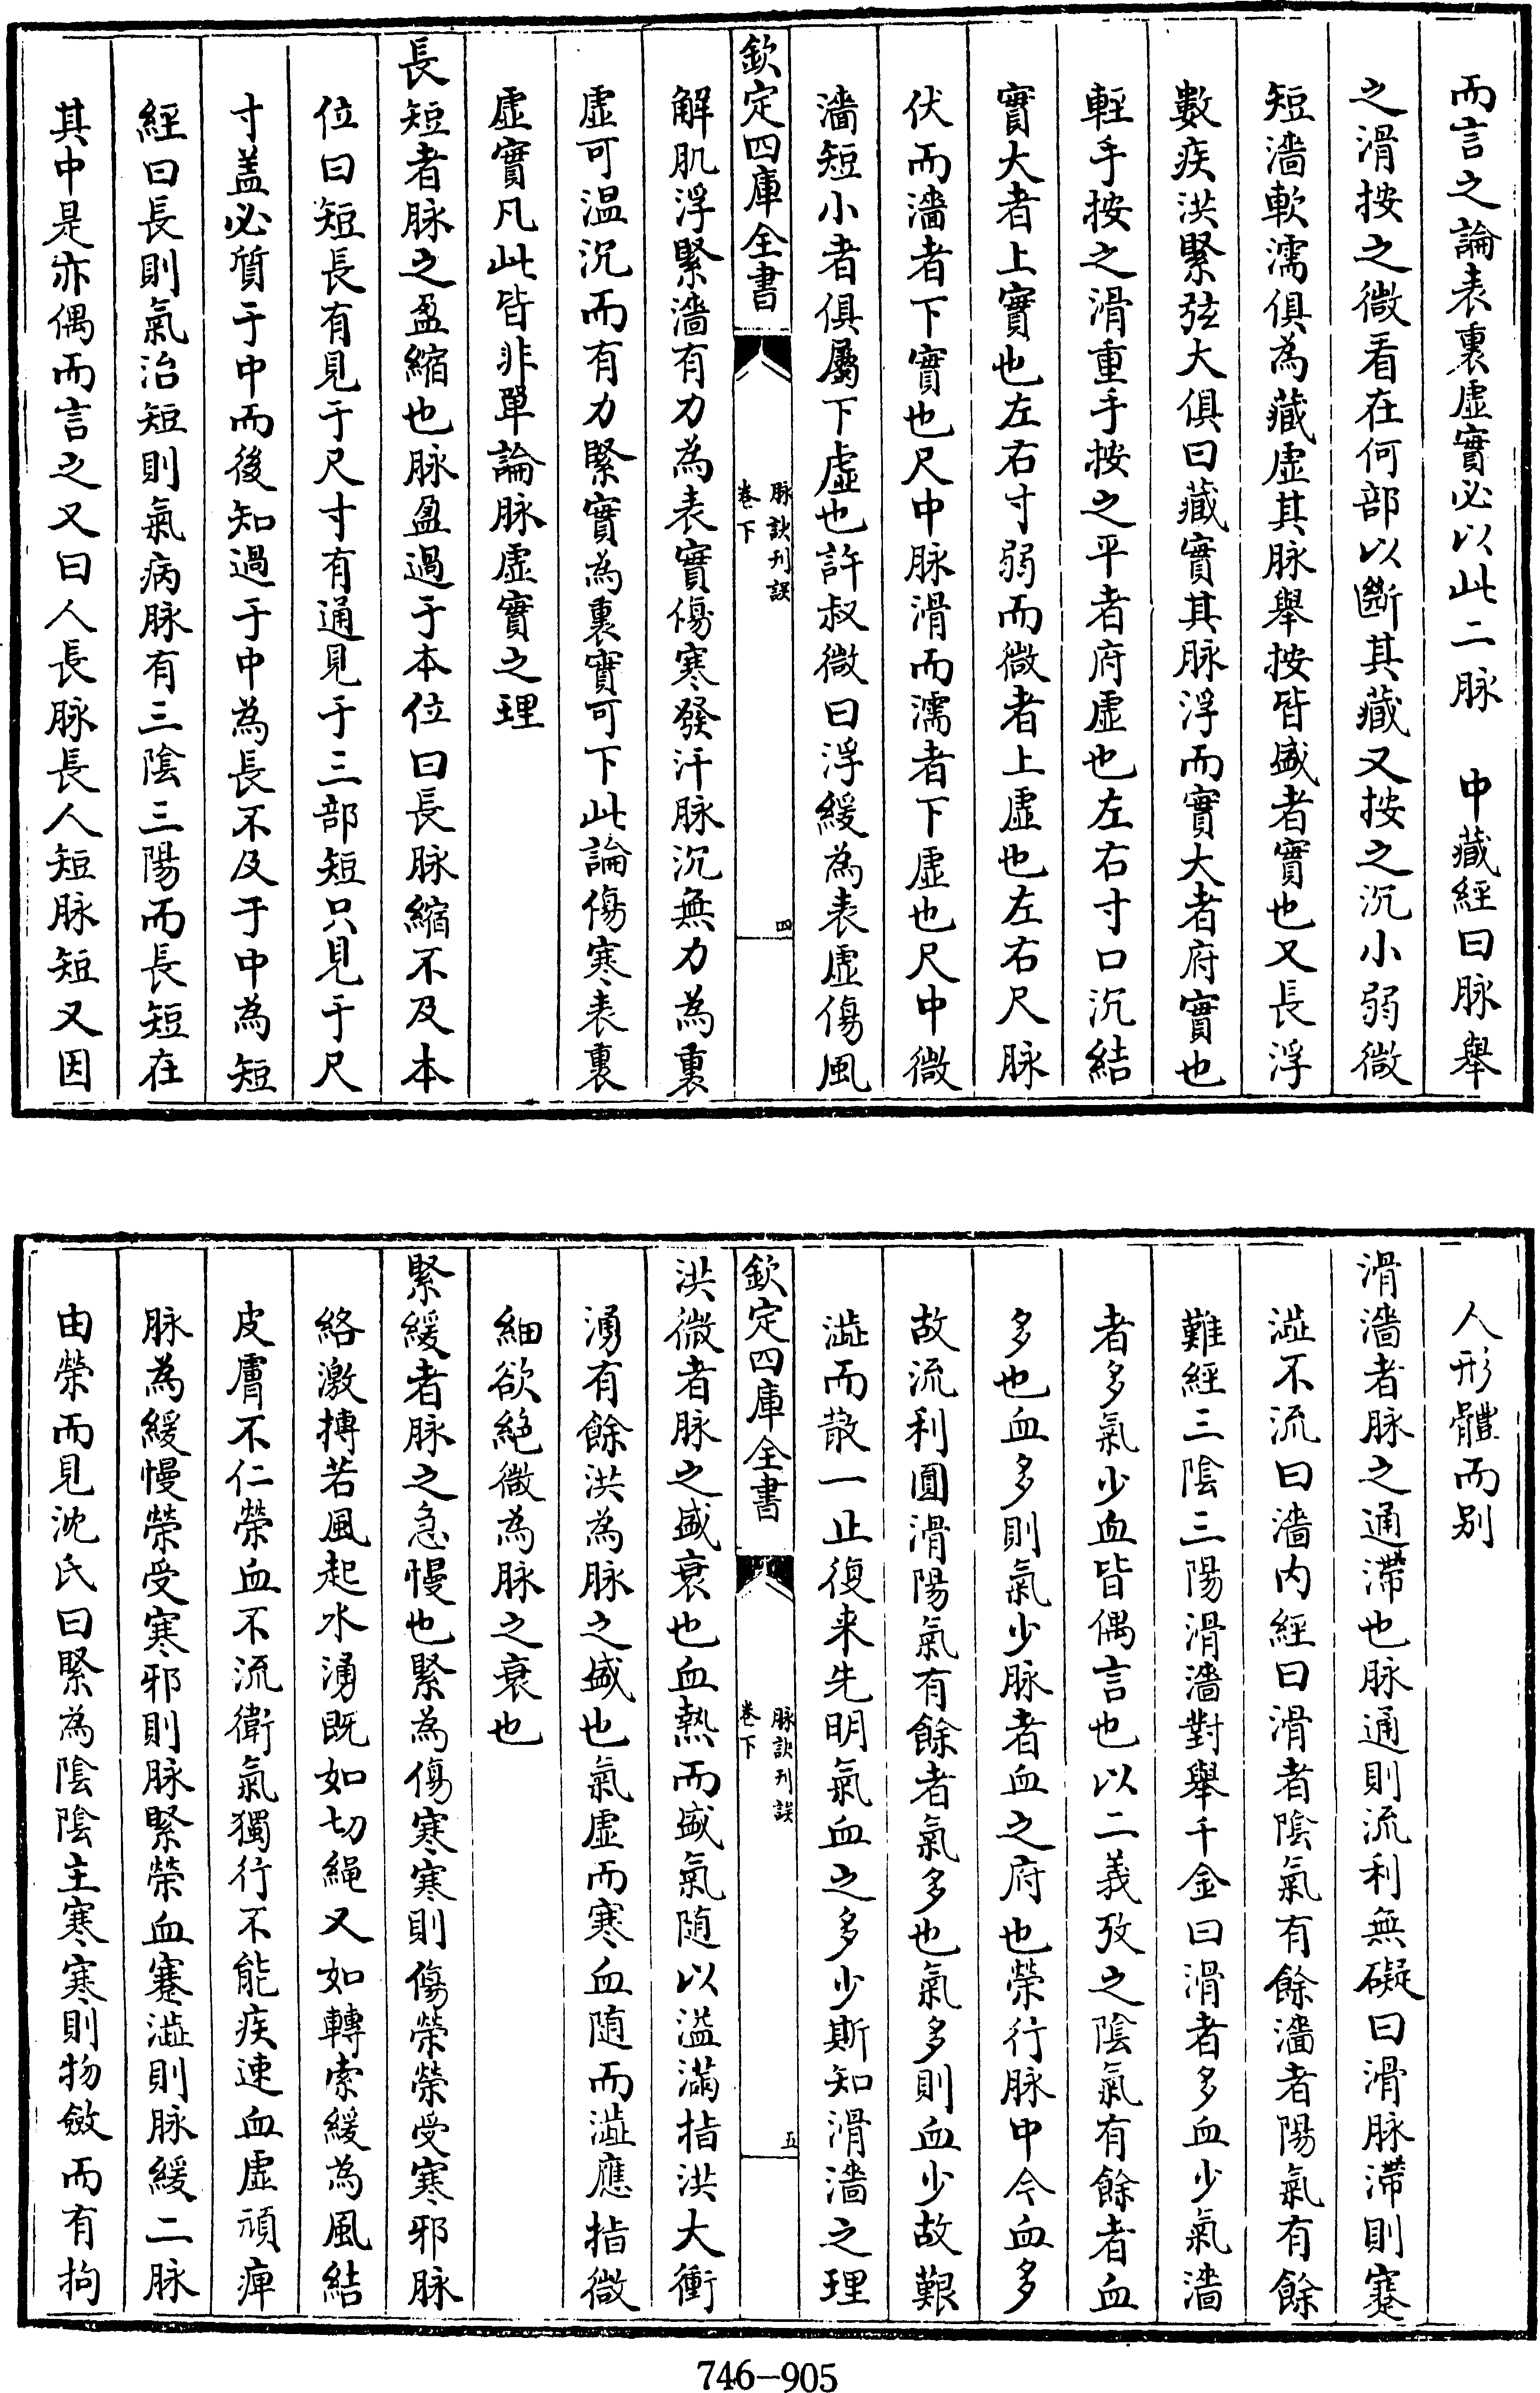 而言之論表裏虛實必以此二脉　中藏經曰脉舉
之滑按之微看在何部以斷其藏又按之沉小弱微
短濇軟濡俱為藏虛其脉舉按皆盛者實也又長浮
數疾洪緊弦大俱曰藏實其脉浮而實大者府實也
輕手按之滑重手按之平者府虛也左右寸口沉結
實大者上實也左右寸弱而微者上虛也左右尺脉
伏而濇者下實也尺中脉滑而濡者下虛也尺中微
濇短小者俱屬下虛也許叔微曰浮緩為表虛傷風
欽定四庫全書
脉訣刊誤
卷下
四
解肌浮緊濇有力為表實傷寒發汗脉沉無力為裏
虛可温沉而有力緊實為裏實可下此論傷寒表裏
虛實凡此皆非單論脉虛實之理
長短者脉之盈縮也脉盈過于本位曰長脉縮不及本
位曰短長有見于尺寸有通見于三部短只見于尺
寸盖必質于中而後知過于中為長不及于中為短
經曰長則氣治短則氣病脉有三陰三陽而長短在
其中是亦偶而言之又曰人長脉長人短脉短又因
人形體而别
滑濇者脉之通滯也脉通則流利無礙曰滑脉滯則蹇
澁不流曰濇内經曰滑者陰氣有餘濇者陽氣有餘
難經三陰三陽滑濇對舉千金曰滑者多血少氣濇
者多氣少血皆偶言也以二義攷之陰氣有餘者血
多也血多則氣少脉者血之府也榮行脉中今血多
故流利圓滑陽氣有餘者氣多也氣多則血少故艱
澁而散一止復来先明氣血之多少斯知滑濇之理
欽定四庫全書
脉訣刊誤
卷下
五
洪微者脉之盛衰也血熱而盛氣随以溢滿指洪大衝
湧有餘洪為脉之盛也氣虛而寒血随而澁應指微
細欲絶微為脉之衰也
緊緩者脉之急慢也緊為傷寒寒則傷榮榮受寒邪脉
絡激搏若風起水湧既如切繩又如轉索緩為風結
皮膚不仁榮血不流衛氣獨行不能疾速血虛頑痺
脉為緩慢榮受寒邪則脉緊榮血蹇澁則脉緩二脉
由榮而見沈氏曰緊為陰陰主寒寒則物斂而有拘
746-905